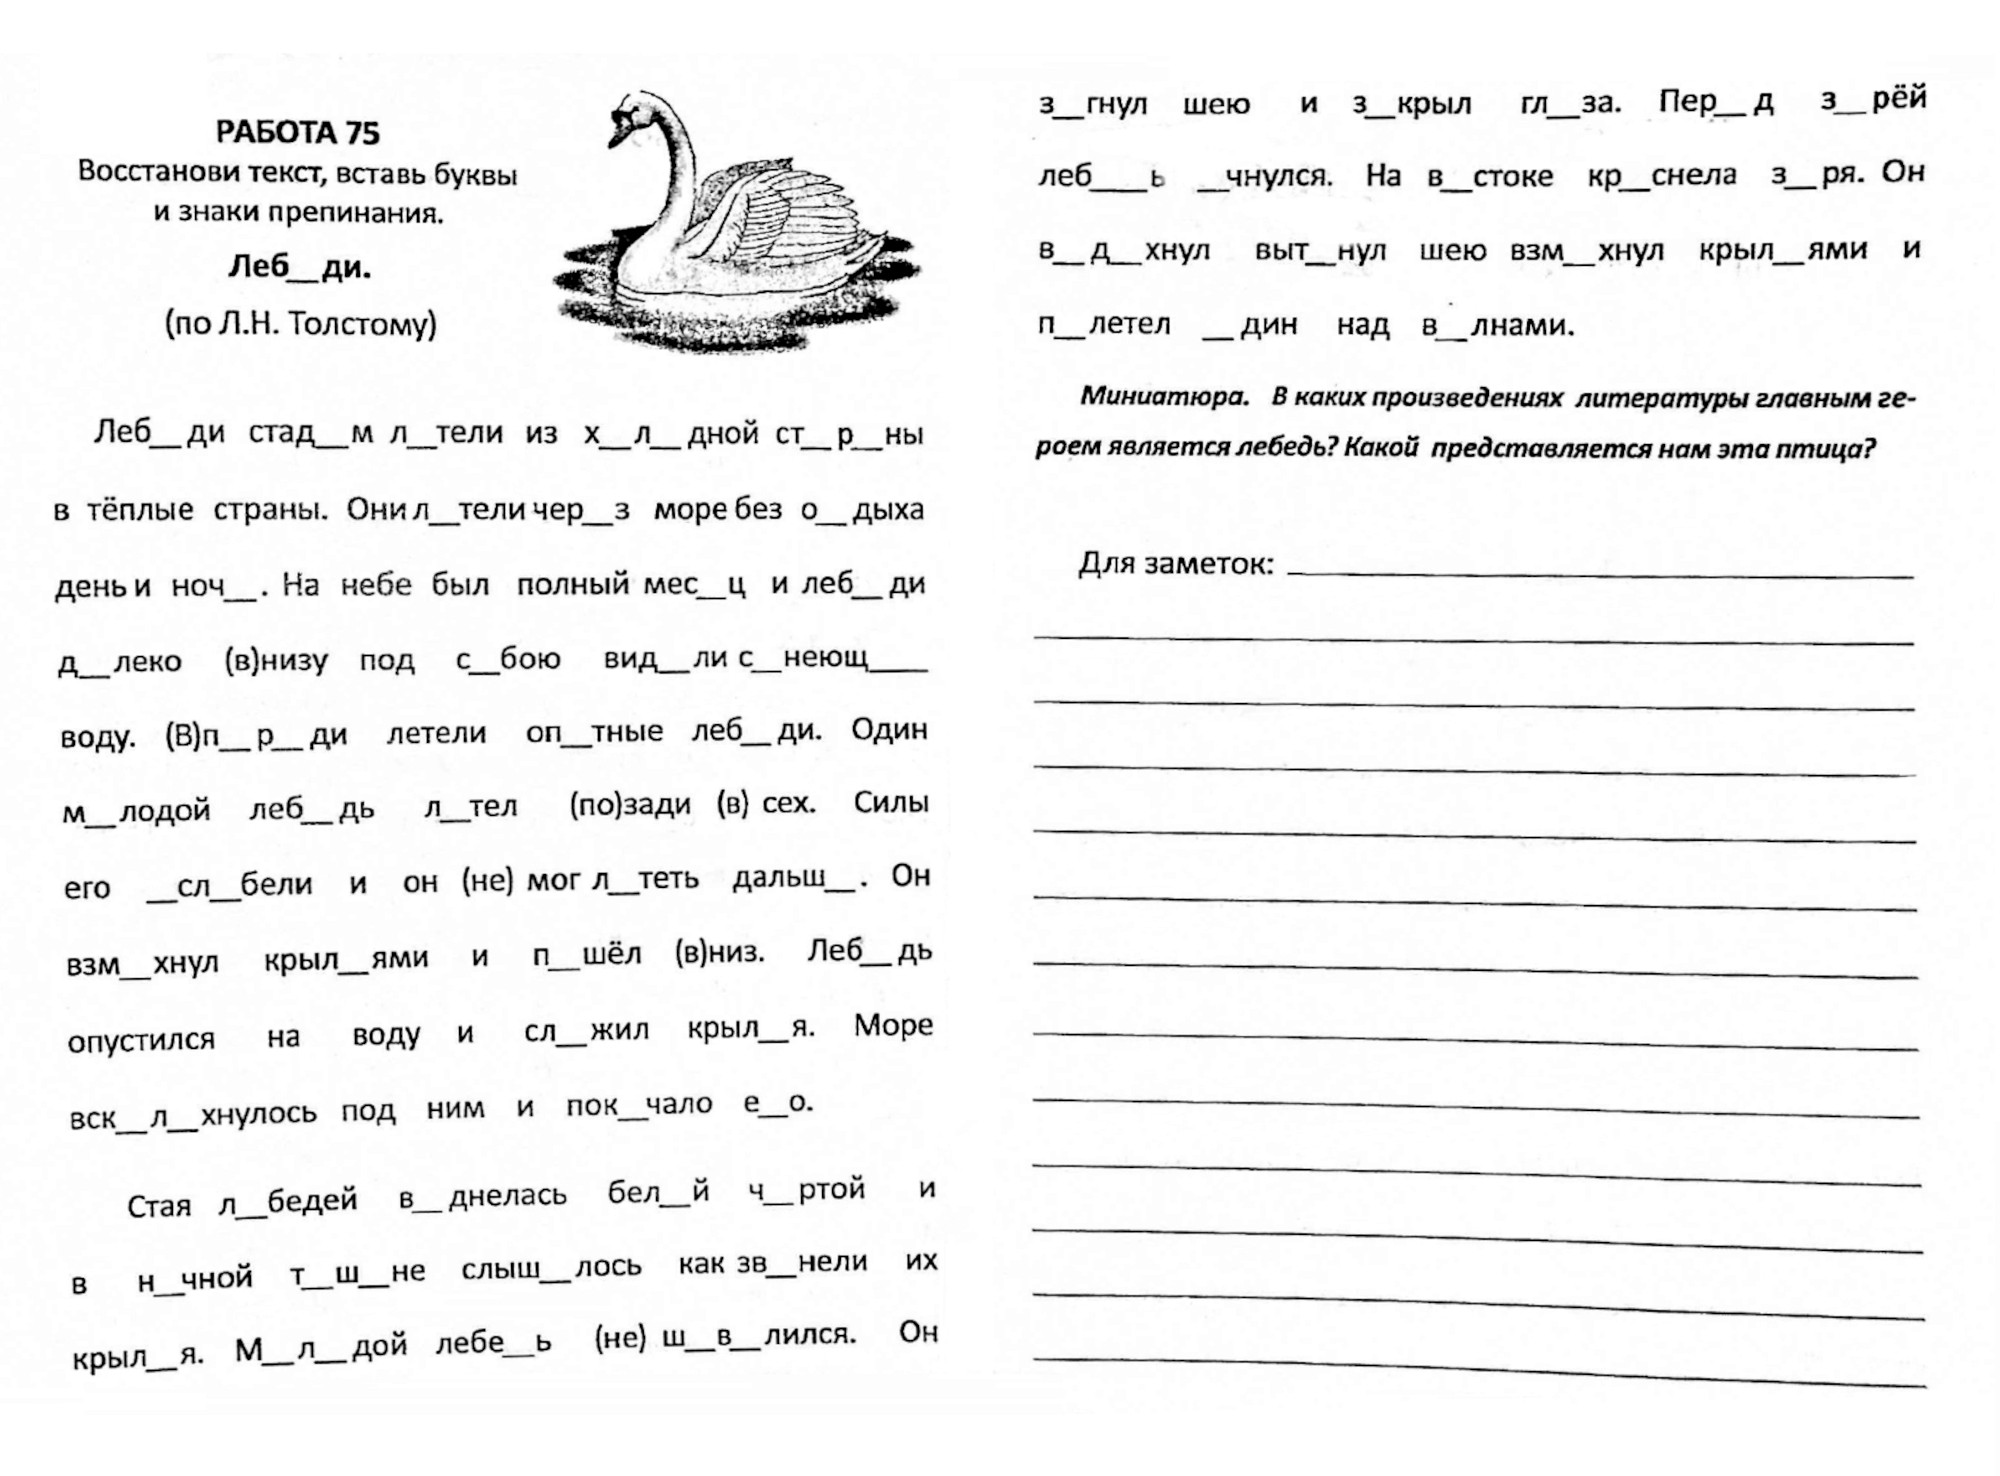 РАБОТА 75
Восстанови текст, вставь буквы
и знаки препинания.
Леб__ди.
(по Л.Н. Толстому)
Леб__ди стад__м л__тели из х__л__дной ст__р__ны
в тёплые страны. Они л__тели чер__з море без о__дыха
день и ноч__. На небе был полный мес__ц и леб__ди
д__леко (в)низу под с__бою вид__ли с__неющ____
воду. (В)п__р__ди летели оп__тные леб__ди. Один
м__лодой леб__дь л__тел (по)зади (в) сех. Силы
его __сл__бели и он (не) мог л__теть дальш__. Он
взм__хнул крыл__ями и п__шёл (в)низ. Леб__дь
опустился на воду и сл__жил крыл__я. Море
вск__л__хнулось под ним и пок__чало е__о.
Стая л__бедей в__днелась бел__й ч__ртой и
в н__чной т__ш__не слыш__лось как зв__нели их
крыл__я. М__л__дой лебе__ь (не) ш__в__лился. Он
з__гнул шею и з__крыл гл__за. Пер__д з__рёй
леб____ь __чнулся. На в__стоке кр__снела з__ря. Он
в__д__хнул выт__нул шею взм__хнул крыл__ями и
п__летел __дин над в__лнами.
Миниатюра. В каких произведениях литературы главным ге-
роем является лебедь? Какой представляется нам эта птица?
Для заметок: